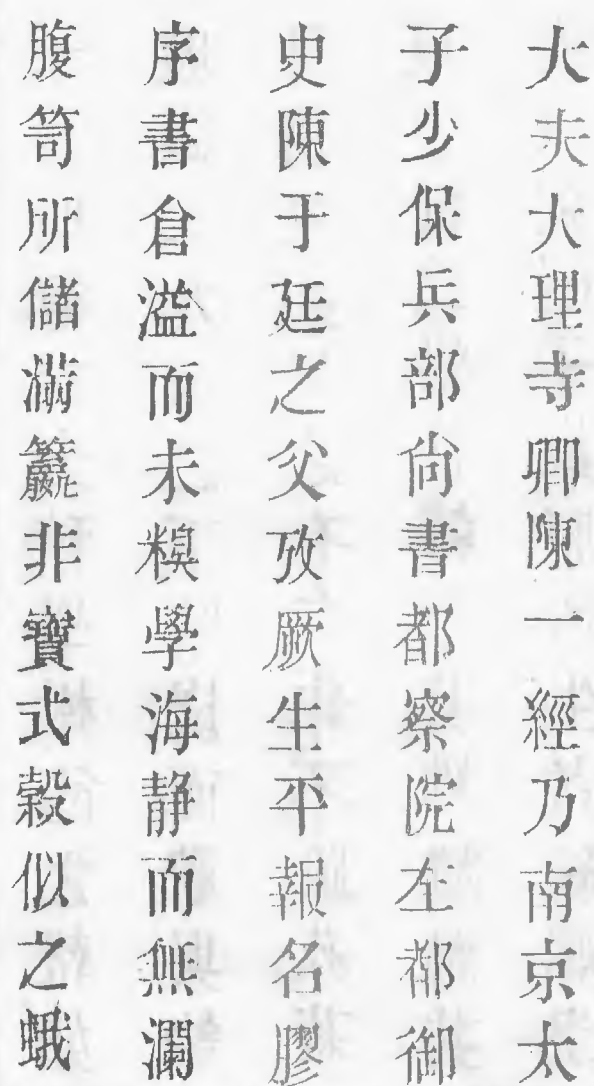 大夫大理寺卿陳一經乃南京太
子少保兵部尚書都察院左都御
史陳于廷之父攷厥生平報名膠
序書倉溢而未糗學海静而無瀾
腹笥所儲滿籯非寶式穀似之蛾